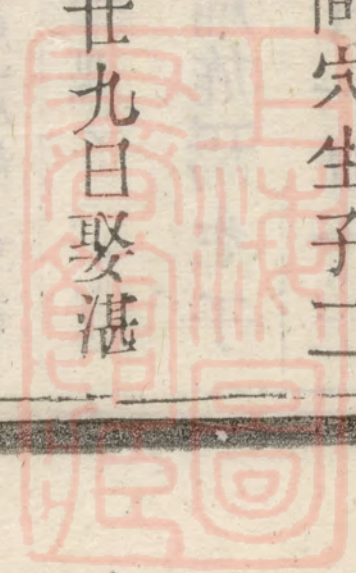 同穴生子二
廿九日娶湛
上海圖
書館藏